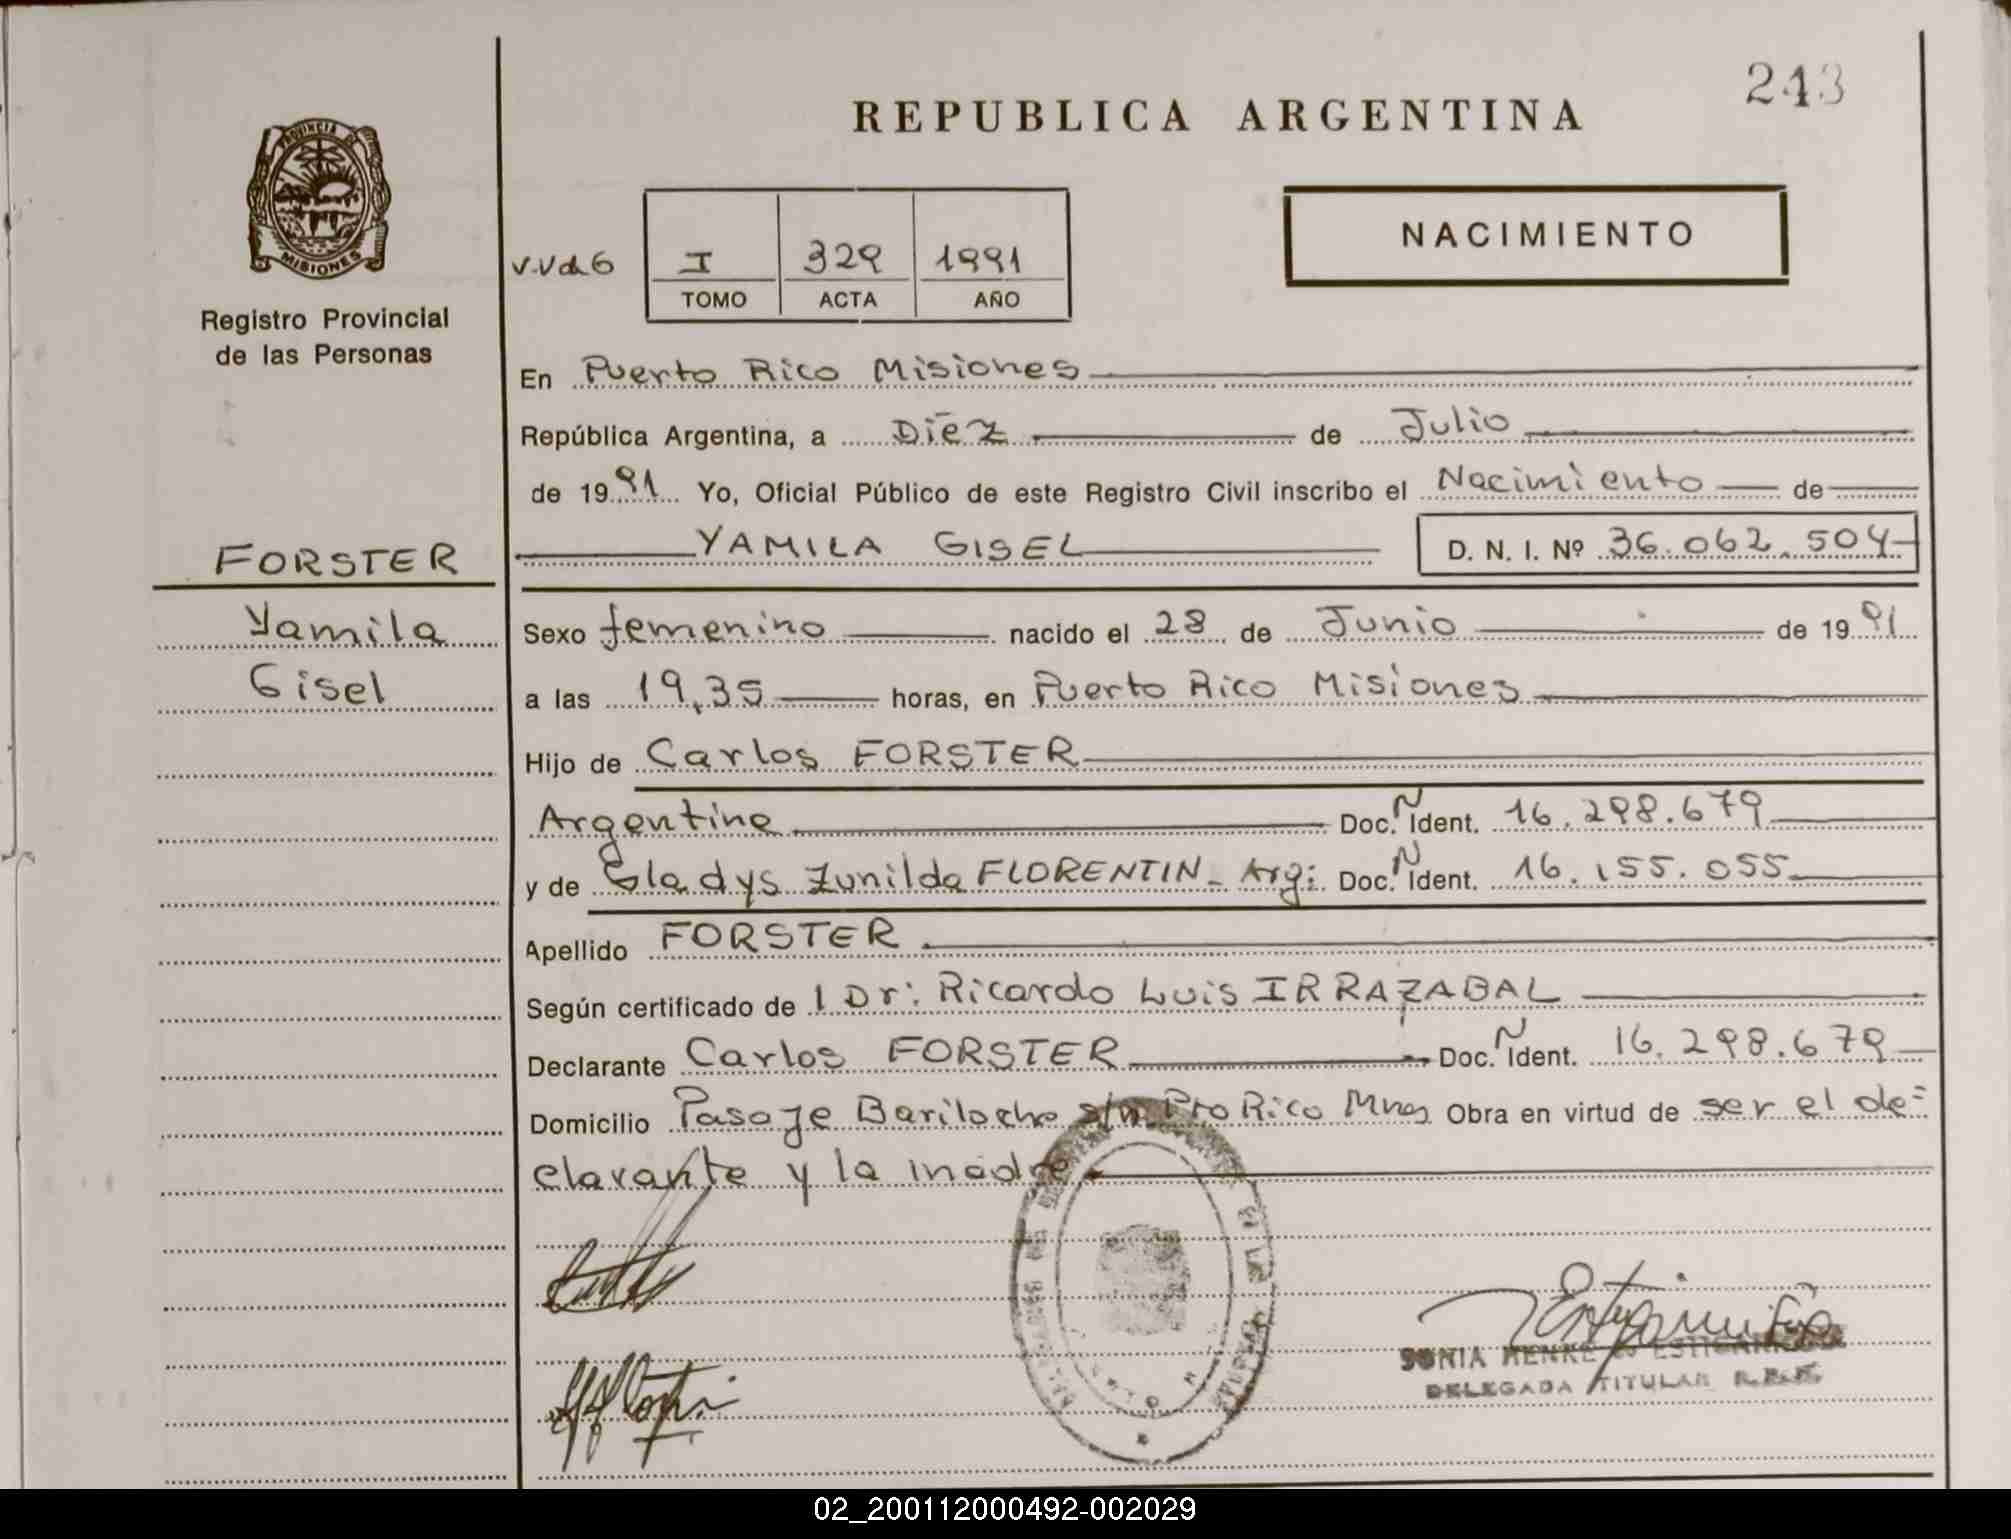 243
REPUBLICA ARGENTINA
PROVINCIA DE
MISIONES
Registro Provincial
de las Personas
NACIMIENTO
I 329 1991
TOMO ACTA AÑO
En Puerto Rico Misiones
República Argentina, a Diez de Julio
de 1991 Yo, Oficial Público de este Registro Civil inscribo el Nacimiento de
FORSTER
YAMILA GISEL D. N. I. Nº 36.062.504
Yamila
Gisel
Sexo femenino nacido el 28 de Junio de 1991
a las 19,35 horas, en Puerto Rico Misiones
Hijo de Carlos FORSTER
Argentino Doc. Ñ Ident. 16.298.679
y de Gladys Zunilda FLORENTIN - Arg: Doc. Ñ Ident. 16.155.055
Apellido FORSTER
Según certificado de l Dr: Ricardo Luis IRRAZABAL
Declarante Carlos FORSTER Doc. Ñ Ident. 16.298.679
Domicilio Pasaje Bariloche s/n Pto Rico Mnes Obra en virtud de ser el de=
clarante y la madre
SONIA HENKE
DELEGADA TITULAR
02_200112000492-002029